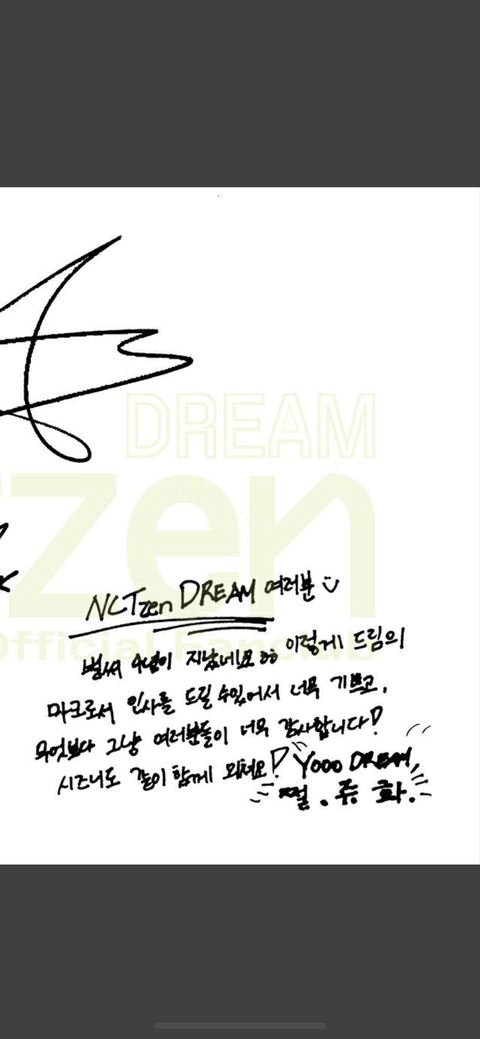 DREAM
zen
Official Fanclub
NCTzen DREAM 여러분
벌써 4년이 지났네요 ㅎㅎ 이렇게 드림의
마크로서 인사를 드릴 수있어서 너무 기쁘고,
무엇보다 그냥 여러분들이 너무 감사합니다!
시즈니도 같이 함께 외쳐요! Yooo DREAM,
쩔.쥬화.